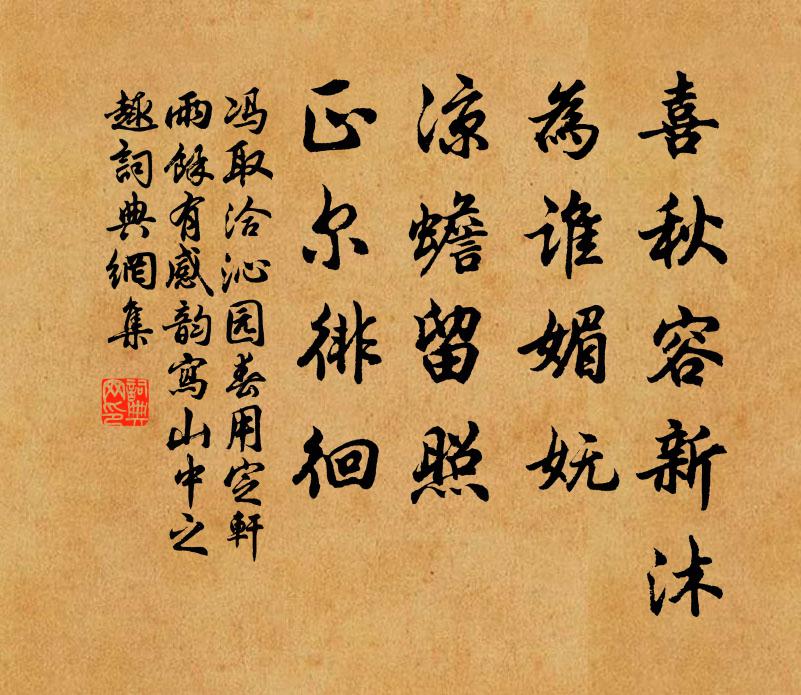 喜秋容新沐
為谁媚妩
涼蟾留照
正尔徘徊
冯取洽沁园春用定軒
雨馀有感韵寫山中之
趣詞典網集
詞典网印